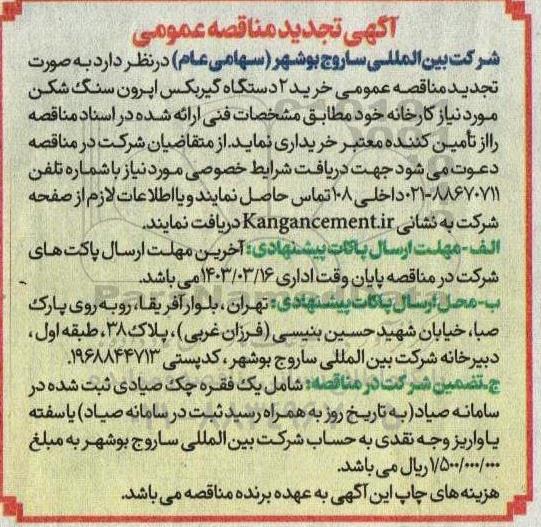 آگهی تجدید مناقصه عمومی
شرکت بین المللی ساروج بوشهر (سهامی عام) در نظر دارد به صورت
تجدید مناقصه عمومی خرید ۲ دستگاه گیربکس اپرون سنگ شکن
مورد نیاز کارخانه خود مطابق مشخصات فنی ارائه شده در اسناد مناقصه
را از تأمین کننده معتبر خریداری نماید. از متقاضیان شرکت در مناقصه
دعوت می شود جهت دریافت شرایط خصوصی مورد نیاز با شماره تلفن
۰۲۱-۸۸۶۷۰۷۱۱ داخلی ۱۰۸ تماس حاصل نمایند و یا اطلاعات لازم از صفحه
شرکت به نشانی Kangancement.ir دریافت نمایند.
الف - مهلت ارسال پاکات پیشنهادی: آخرین مهلت ارسال پاکت های
شرکت در مناقصه پایان وقت اداری ۱۴۰۳/۰۳/۱۶ می باشد.
ب - محل ارسال پاکات پیشنهادی: تهران، بلوار آفریقا، روبه روی پارک
صبا، خیابان شهید حسین بنیسی (فرزان غربی)، پلاک ۳۸، طبقه اول،
دبیرخانه شرکت بین المللی ساروج بوشهر، کدپستی ۱۹۶۸۸۴۴۷۱۳.
ج - تضمین شرکت در مناقصه: شامل یک فقره چک صیادی ثبت شده در
سامانه صیاد (به تاریخ روز به همراه رسید ثبت در سامانه صیاد) یا سفته
یا واریز وجه نقدی به حساب شرکت بین المللی ساروج بوشهر به مبلغ
۱/۵۰۰/۰۰۰/۰۰۰ ریال می باشد.
هزینه های چاپ این آگهی به عهده برنده مناقصه می باشد.